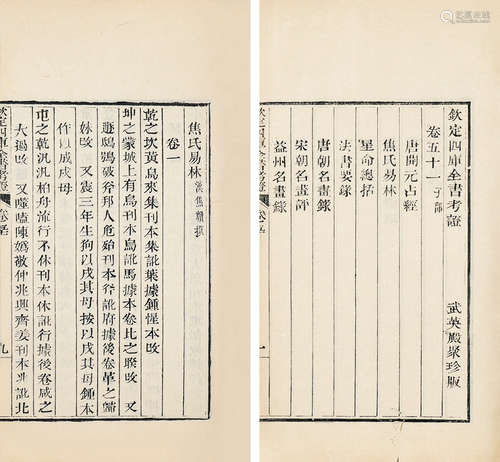 欽定四庫全書考證
卷五十一 子部 武英殿聚珍版
唐開元占經
焦氏易林
星命總括
法書要錄
唐朝名畫錄
宋朝名畫評
益州名畫錄
焦氏易林 漢焦贛撰
卷一
乾之坎黃鳥來集刊本集訛葉據鍾惺本改
坤之蒙城上有烏刊本烏訛馬據本卷比之睽改 又
遯鴟鴞破斧邦人危殆刊本殆訛府據後卷革之歸
妹改 又震三年生狗以戌其母按以戌其母鍾本
作以成戌母
屯之乾汎汎柏舟流行不休刊本休訛行據後卷咸之
大過改 又噬嗑陳媯敬仲兆興齊姜刊本兆訛北
欽定四庫全書考證 九